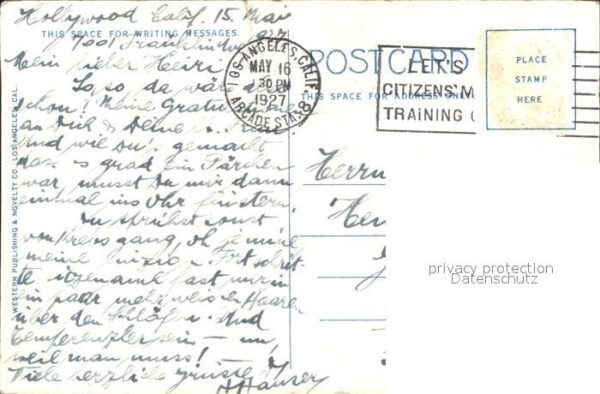 Hollywood Calif. 15. Mai
THIS SPACE FOR WRITING MESSAGES
7001 Franklin Ave 1927
Mein lieber Heiri
So, so, da wär
schon! Meine Gratulation
an Dich & Deine
Und wie Du's gemacht
dass es grad ein Pärchen
war, musst Du mir dann
einmal ins Ohr flüstern.
Du sprühst sonst
von Kreuzgang, oh je mine
meine
in paar mehr weissen Haaren
über den Schläfen. Und
Temperenzler sein – un,
weil man muss! –
Viele herzliche Grüsse
Hauser
WESTERN PUBLISHING & NOVELTY CO., LOS ANGELES, CAL.
POST CARD
THIS SPACE FOR ADDRESS ONLY
LOS ANGELES, CALIF.
MAY 16
30 PM
1927
ARCADE STA. 8
LET'S
CITIZENS' M
TRAINING C
PLACE
STAMP
HERE
Herrn
privacy protection
Datenschutz